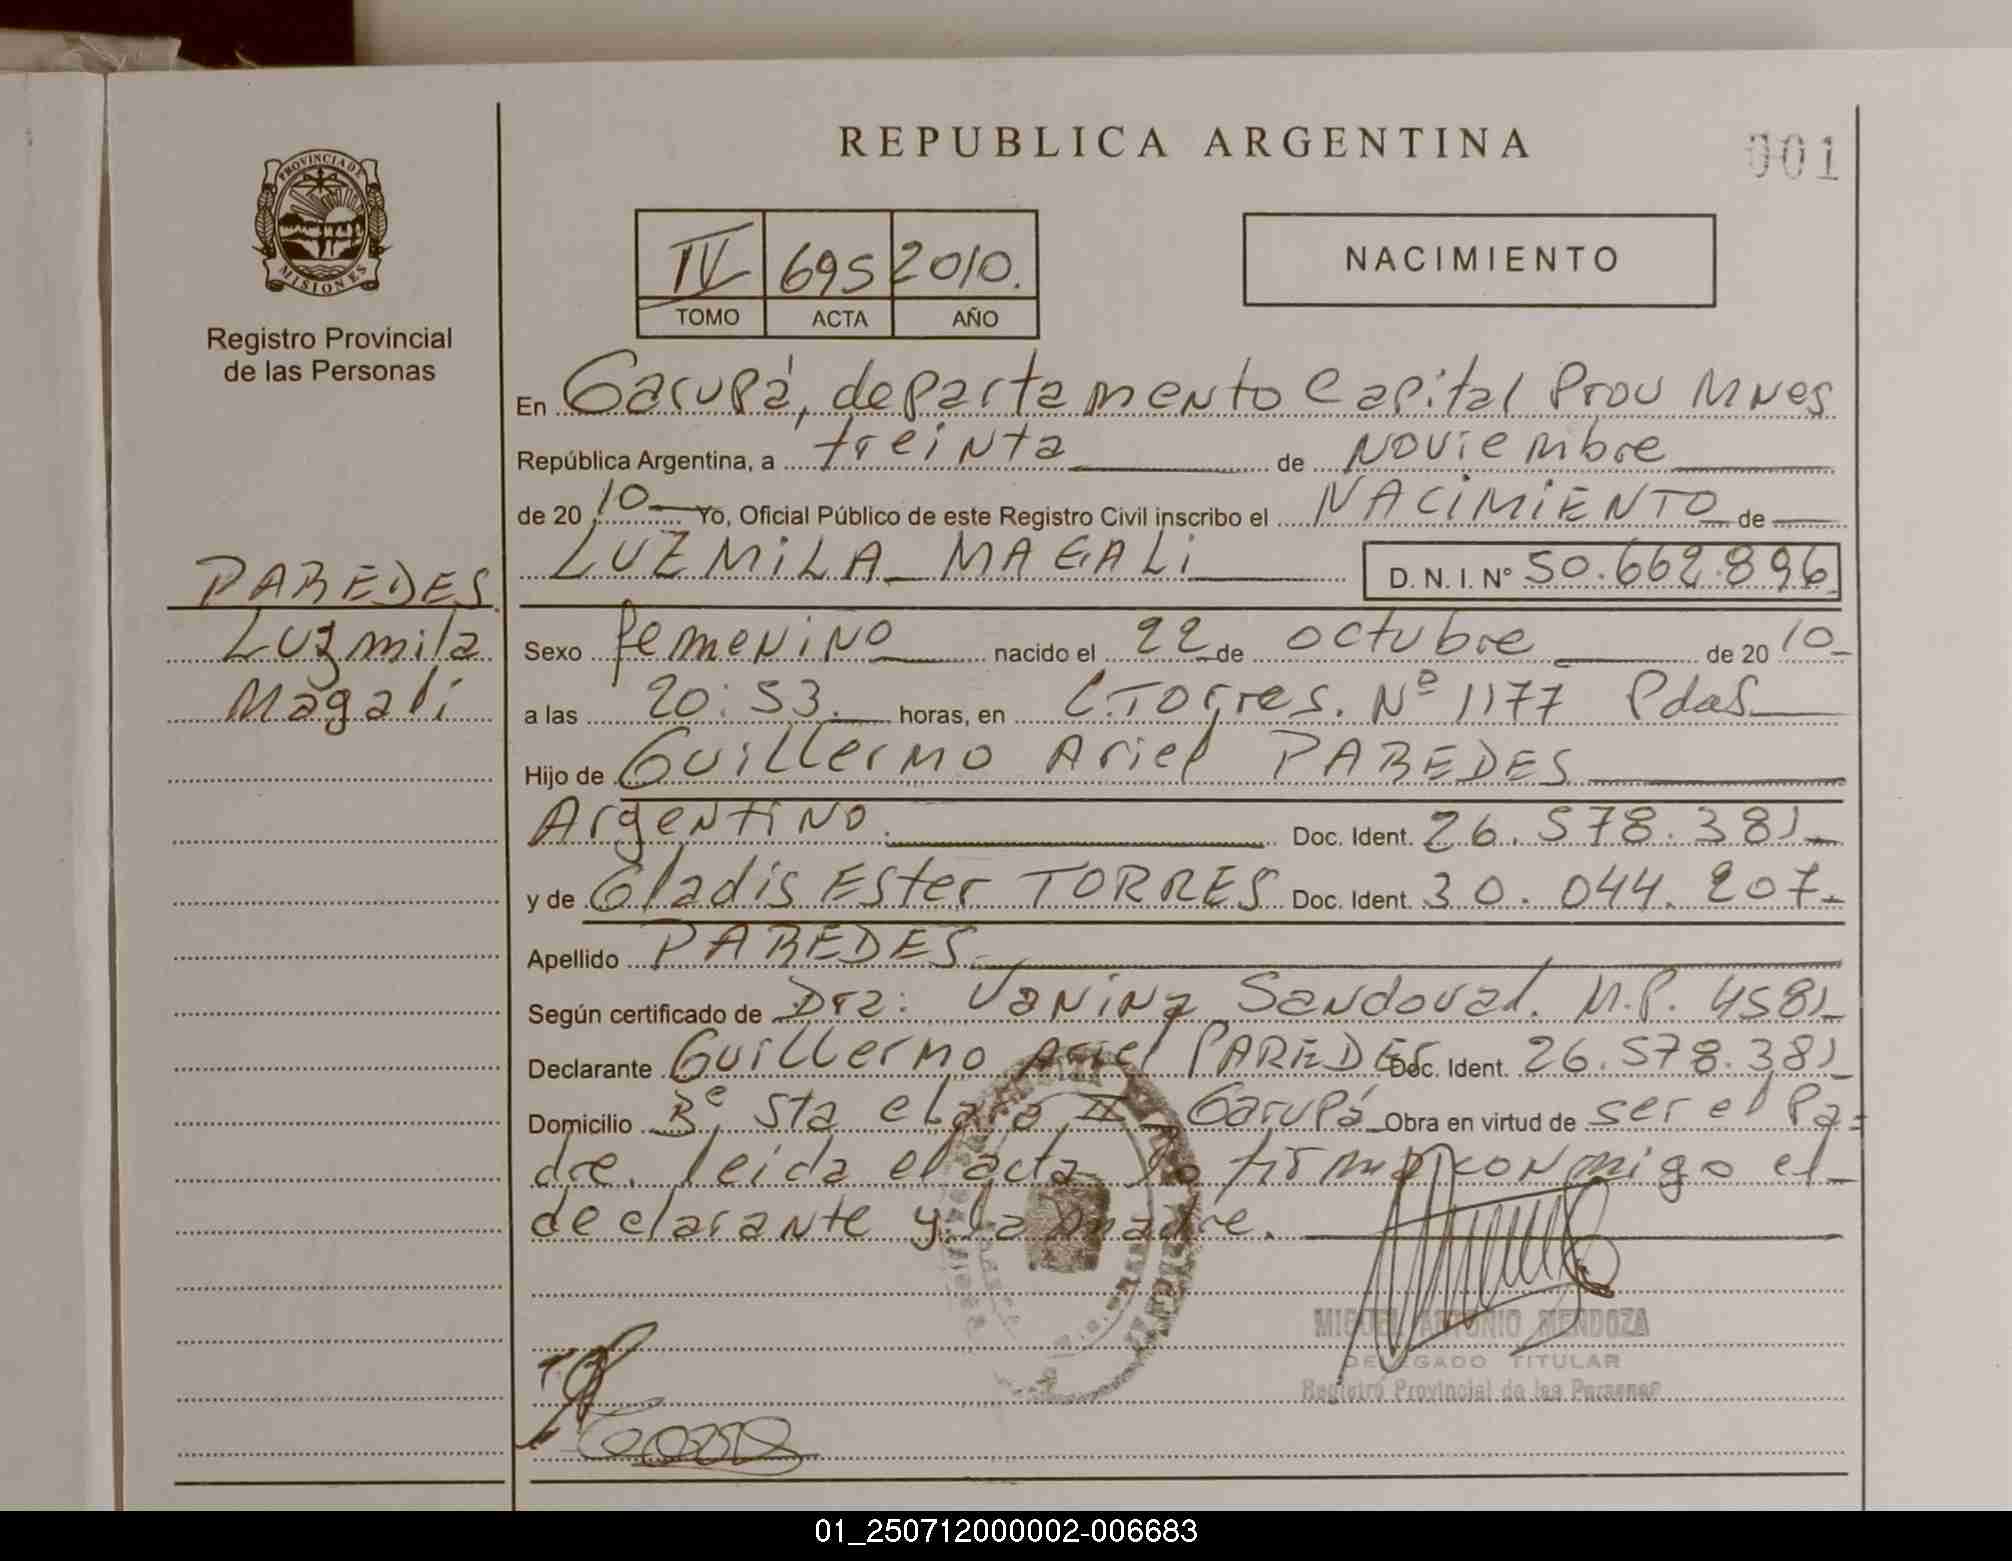 REPUBLICA ARGENTINA
001
PROVINCIA DE
MISIONES
Registro Provincial
de las Personas
IV 695 2010.
TOMO ACTA AÑO
NACIMIENTO
En Garupá, departamento Capital Prov Mnes
República Argentina, a treinta de noviembre
de 20 10 Yo, Oficial Público de este Registro Civil inscribo el NACIMIENTO de
LUZMILA MAGALI D.N.I. Nº 50.662.896
PAREDES
Luzmila
Magali
Sexo femenino nacido el 22 de octubre de 20 10
a las 20:53. horas, en C.Torres. Nº 1177 Pdas
Hijo de Guillermo Ariel PAREDES
Argentino. Doc. Ident. 26.578.381
y de Gladis Ester TORRES Doc. Ident. 30.044.207
Apellido PAREDES
Según certificado de Dra: Vanina Sandoval. M.P. 4581
Declarante Guillermo Ariel PAREDES Doc. Ident. 26.578.381
Domicilio Bº Sta clara II Garupá Obra en virtud de ser el Pa=
dre. leida el acta la firma conmigo el
declarante y la madre.
MIGUEL ANTONIO MENDOZA
DELEGADO TITULAR
Registro Provincial de las Personas
01_250712000002-006683